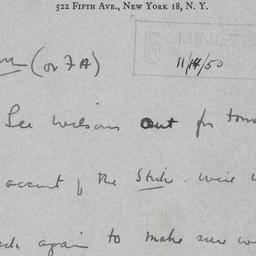 522 Fifth Ave., New York 18, N. Y.
(or FA)
11/14/50
See Wilson out for
account of the Strike. We'll
again to make sure we